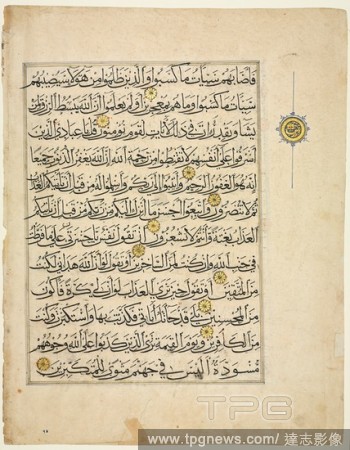 فاصابهم سيئات ما كسبوا والذين ظلموا من هؤلاء سيصيبهم
سيئات ما كسبوا وما هم بمعجزين اولم يعلموا ان الله يبسط الرزق لمن
يشاء ويقدر ان في ذلك لآيات لقوم يؤمنون قل يا عبادي الذين
اسرفوا على انفسهم لا تقنطوا من رحمة الله ان الله يغفر الذنوب جميعا
انه هو الغفور الرحيم وانيبوا الى ربكم واسلموا له من قبل ان يأتيكم العذاب
ثم لا تنصرون واتبعوا احسن ما انزل اليكم من ربكم من قبل ان يأتيكم
العذاب بغتة وانتم لا تشعرون ان تقول نفس يا حسرتى على ما فرطت
في جنب الله وان كنت لمن الساخرين او تقول لو ان الله هداني لكنت
من المتقين او تقول حين ترى العذاب لو ان لي كرة فاكون
من المحسنين بلى قد جاءتك آياتي فكذبت بها واستكبرت وكنت
من الكافرين ويوم القيمة ترى الذين كذبوا على الله وجوههم
مسودة اليس في جهنم مثوى للمتكبرين
TPG
www.tpgnews.com/達志影像